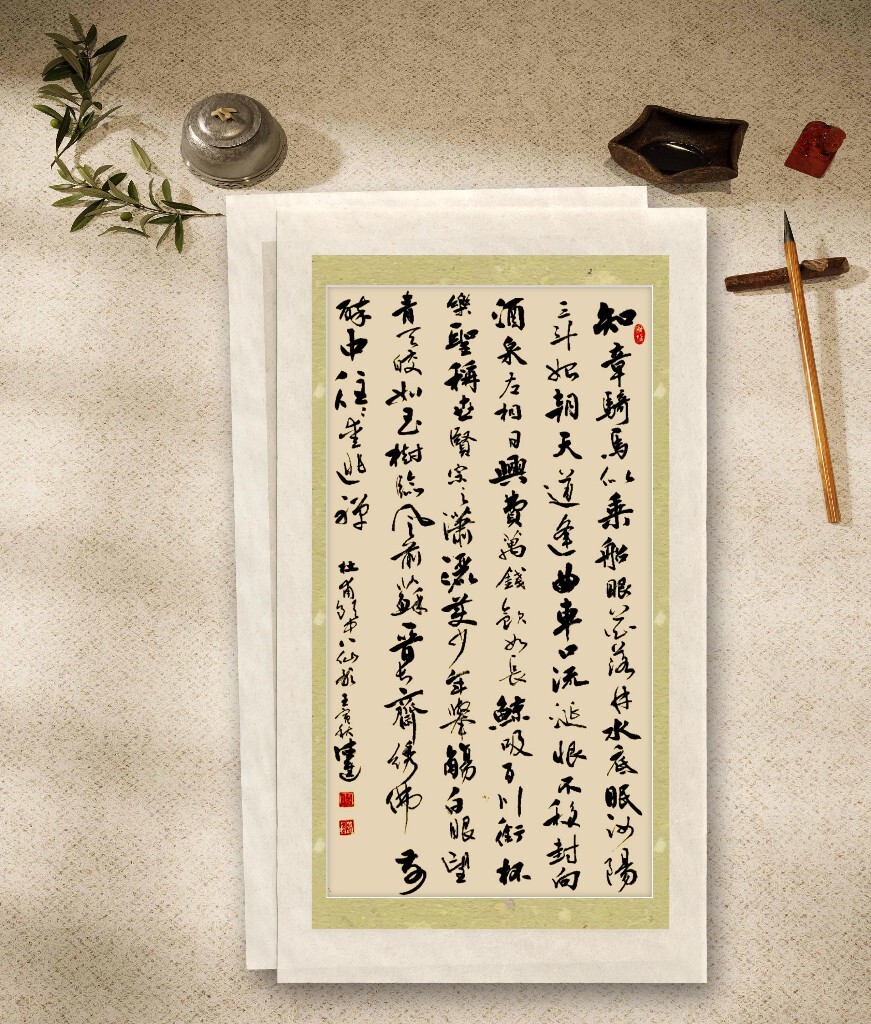 知章騎馬似乘船眼花落井水底眠汝陽
三斗始朝天道逢曲車口流涎恨不移封向
酒泉左相日興費萬錢飲如長鯨吸百川銜杯
樂聖稱世賢宗之瀟灑美少年舉觴白眼望
青天皎如玉樹臨風前蘇晉長齋綉佛前
醉中往往愛逃禪 杜甫飲中八仙歌 壬寅秋